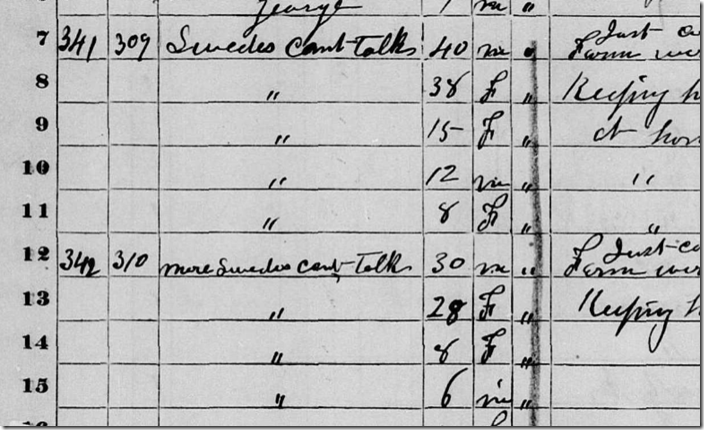 George 1 m "
7 341 309 Swedes Cant Talk 40 m " Just
Farm
8 " 38 F " Keeping h
9 " 15 F " at hom
10 " 12 m " "
11 " 8 F " "
12 342 310 more Swedes cant Talk 30 m " Just
Farm
13 " 28 F " Keeping h
14 " 8 F "
15 " 6 m "